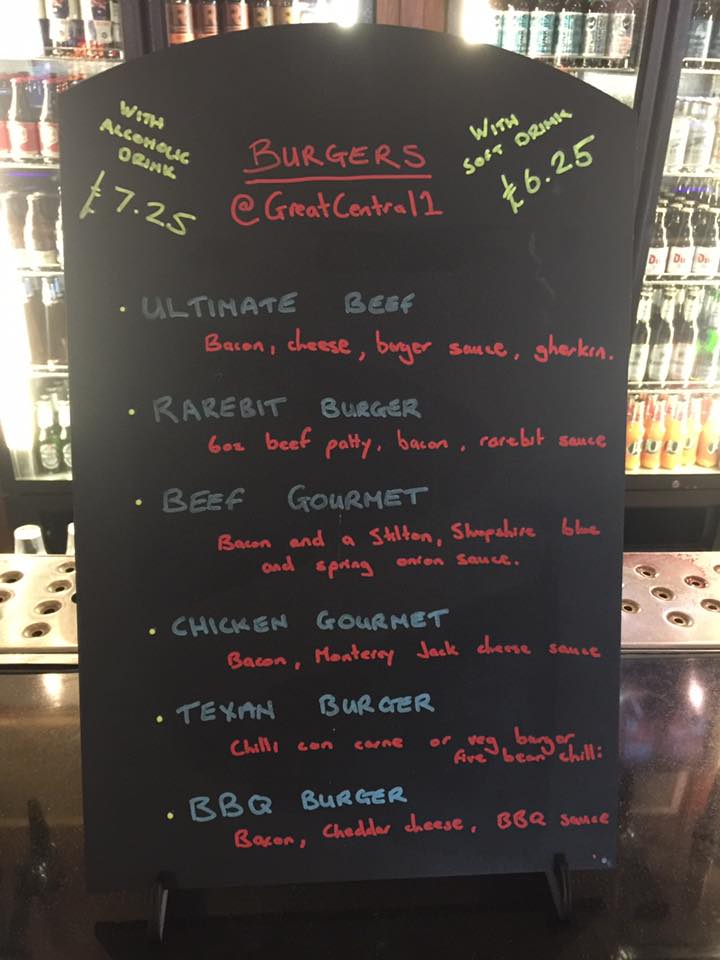 WITH
ALCOHOLIC
DRINK
£7.25
BURGERS
@GreatCentral1
WITH
SOFT DRINK
£6.25
• ULTIMATE BEEF
Bacon, cheese, burger sauce, gherkin.
• RAREBIT BURGER
6oz beef patty, bacon, rarebit sauce
• BEEF GOURMET
Bacon and a Stilton, Shropshire blue
and spring onion sauce.
• CHICKEN GOURMET
Bacon, Monterey Jack cheese sauce
• TEXAN BURGER
Chilli con carne or veg burger
five bean chilli
• BBQ BURGER
Bacon, Cheddar cheese, BBQ sauce